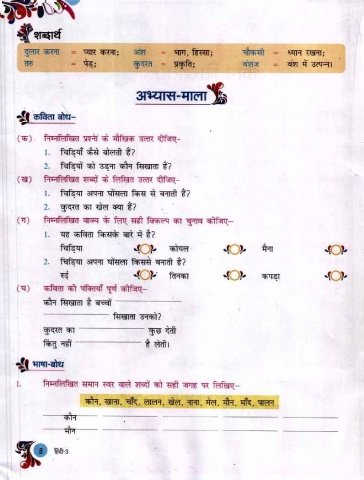 शब्दार्थ
दुलार करना = प्यार करना; अंश = भाग, हिस्सा; चौकसी = ध्यान रखना;
तरु = पेड़; कुदरत = प्रकृति; वंशज = वंश में उत्पन्न।
अभ्यास-माला
कविता बोध-
(क) निम्नलिखित प्रश्नों के मौखिक उत्तर दीजिए-
1. चिड़ियाँ कैसे बोलती हैं?
2. चिड़ियों को उड़ना कौन सिखाता है?
(ख) निम्नलिखित शब्दों के लिखित उत्तर दीजिए-
1. चिड़िया अपना घोंसला किस से बनाती हैं?
2. कुदरत का खेल क्या है?
(ग) निम्नलिखित वाक्य के लिए सही विकल्प का चुनाव कीजिए-
1. यह कविता किसके बारे में है?
चिड़िया कोयल मैना
2. चिड़िया अपना घोंसला किससे बनाती है?
रुई तिनका कपड़ा
(घ) कविता की पंक्तियाँ पूर्ण कीजिए-
कौन सिखाता है बच्चों
सिखाता उनको?
कुदरत का कुछ देती
किंतु नहीं है लेती।
भाषा-बोध
1. निम्नलिखित समान स्वर वाले शब्दों को सही जगह पर लिखिए-
कौन, खाना, चाँद, लालन, खेल, नाना, मेल, मौन, माँद, पालन
कौन
मौन
8 हिंदी-3